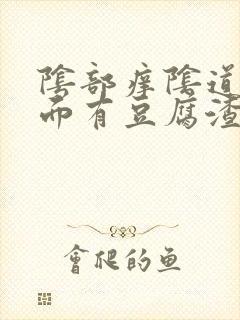 陰部痒陰道
而有豆腐渣
會爬的鱼